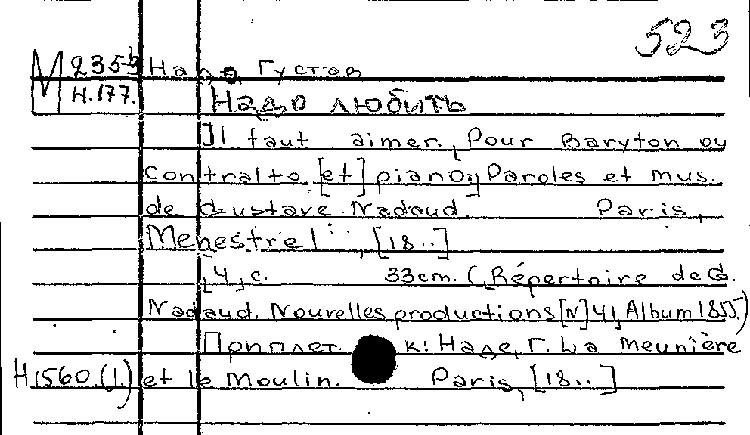 523
М 2353 Надо, Густав
Н.177. Надо любить
Il faut aimer, Pour Baryton ou
contralto [et] piano, Paroles et mus.
de Gustave Nadaud. Paris,
"Menestrel", [18..]
4 c. 33cm. (Répertoire de G.
Nadaud. Nouvelles productions [N] 41, Album 1855)
Приплет. к: Надо, Г. La meunière
Н1560.(1.) et le moulin. Paris, [18..]